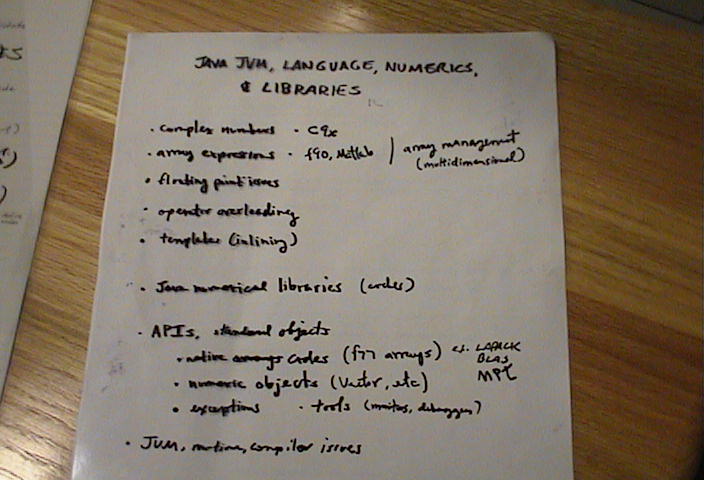 JAVA JVM, LANGUAGE, NUMERICS,
& LIBRARIES
• complex numbers • C9x
• array expressions • f90, Matlab | array management
(multidimensional)
• floating point issues
• operator overloading
• templates (inlining)
• Java numerical libraries (codes)
• APIs, standard objects
• native codes (f77 arrays) eg. LAPACK
BLAS
MPI
• numeric objects (Vector, etc)
• exceptions • tools (monitors, debuggers)
• JVM, runtime, compiler issues